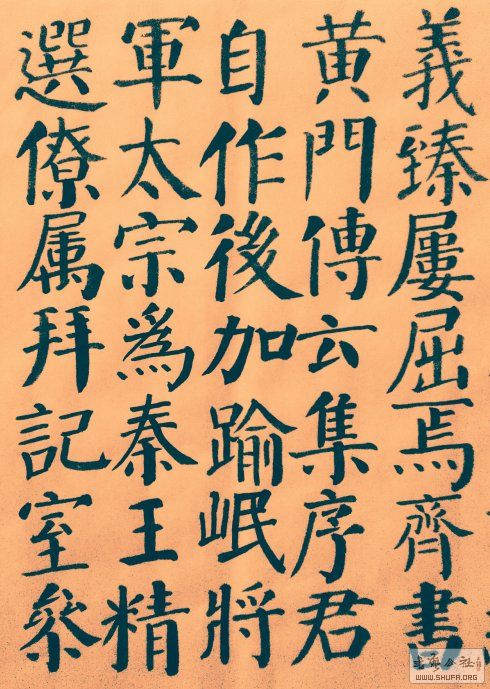 義臻屢屈焉齊書
黄門傳云集序君
自作後加踰岷將
軍太宗爲秦王精
選僚属拜記室叅
WWW.SHUFA.ORG